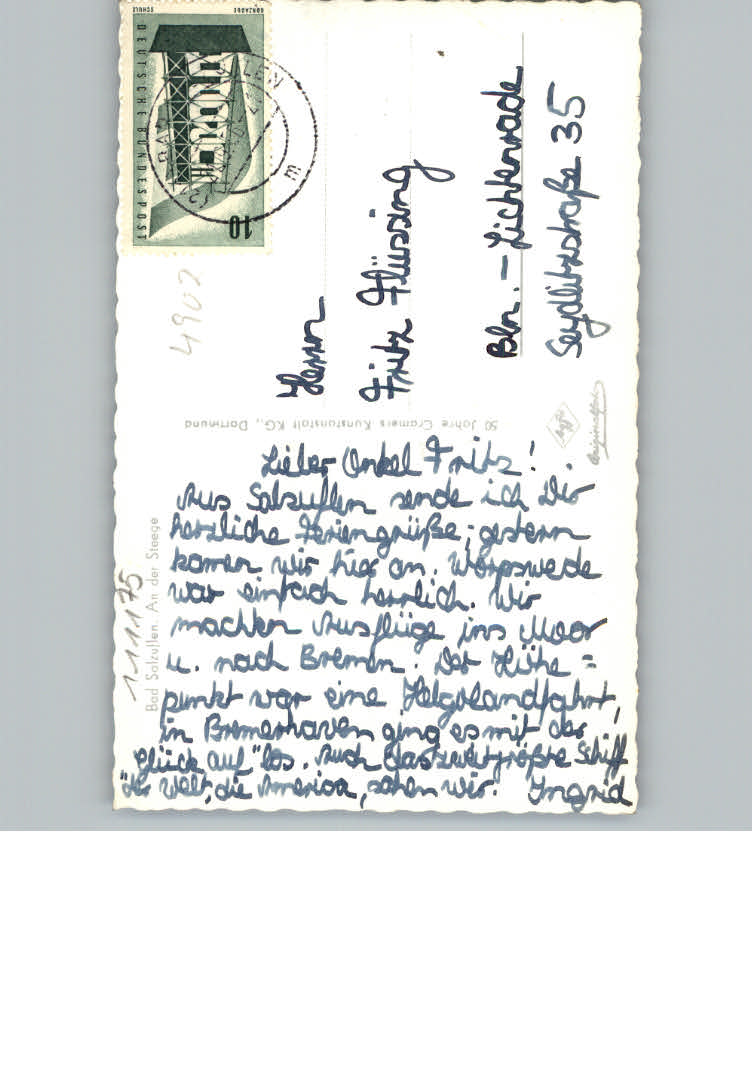 Lieber Onkel Fritz!
Aus Salzuflen sende ich Dir
herzliche Feriengrüße; gestern
kamen wir hier an. Worpswede
war einfach herrlich. Wir
machten Ausflüge ins Moor
u. nach Bremen. Der Höhe=
punkt war eine Helgolandfahrt,
in Bremerhaven ging es mit der
"Glück auf" los. Auch das zweitgrößte Schiff
der Welt, die America, sahen wir. Ingrid
Herrn
Fritz Flüssing
Bln. - Lichtenrade
Seydlitzstraße 35
4902
111175
Bad Salzuflen. An der Steege
50 Jahre Cramers Kunstanstalt KG., Dortmund
Agfa
Originalfoto
DEUTSCHE BUNDESPOST
10
SCHULZ
GONZAGUE
EUROPA